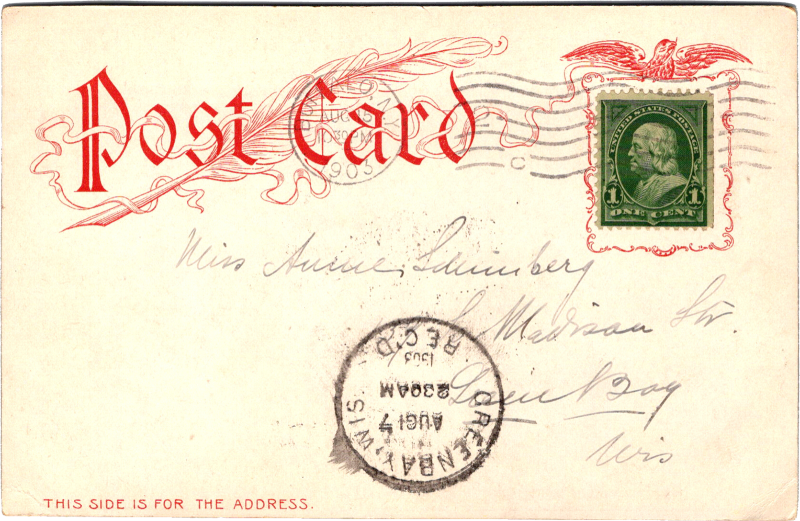 Post Card
AUG 15
1903
UNITED STATES POSTAGE
1 1
ONE CENT
Miss Annie
S. Madison Str.
Green Bay
Wis
GREEN BAY, WIS.
AUG 17
230AM
1903
REC'D
THIS SIDE IS FOR THE ADDRESS.